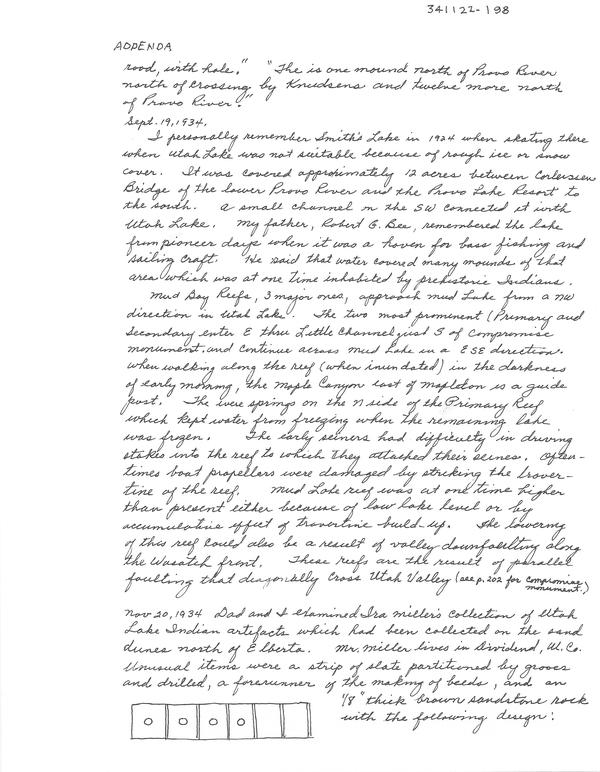 341122-198
ADDENDA
rood, with hole." "The is one mound north of Provo River
north of crossing by Knudsens and twelve more north
of Provo River."
Sept. 19, 1934.
I personally remember Smith's Lake in 1924 when skating there
when Utah Lake was not suitable because of rough ice or snow
cover. It was covered approximately 12 acres between
Bridge of the lower Provo River and the Provo Lake Resort to
the south. A small channel on the SW connected it with
Utah Lake. My father, Robert G. Bee, remembered the lake
from pioneer days when it was a haven for bass fishing and
sailing craft. He said that water covered many mounds of that
area which was at one time inhabited by prehistoric Indians.
Mud Bay Reefs, 3 major ones, approach Mud Lake from a NW
direction in Utah Lake. The two most prominent (Primary and
Secondary enter E thru Little Channel just S of Compromise
monument and continue across Mud Lake in a ESE direction.
When walking along the reef (when inundated) in the darkness
of early morning, the Maple Canyon east of Mapleton is a guide
post. The were springs on the N side of the Primary Reef
which kept water from freezing when the remaining lake
was frozen. The early seiners had difficulty in driving
stakes into the reef to which they attached their seines. Often-
times boat propellers were damaged by striking the traver-
tine of the reef. Mud Lake reef was at one time higher
than present either because of low lake level or by
accumulative effect of travertine build-up. The lowering
of this reef could also be a result of valley downfaulting along
the Wasatch front. These reefs are the result of parallel
faulting that diagonally cross Utah Valley (see p. 202 for compromise
monument.)
Nov 20, 1934 Dad and I examined Ira Miller's collection of Utah
Lake Indian artifacts which had been collected on the sand
dunes north of Elberta. Mr. Miller lives in Dividend, Ut. Co.
Unusual items were a strip of slate partitioned by groves
and drilled, a forerunner of the making of beeds, and an
1/8" thick brown sandstone rock
with the following design: